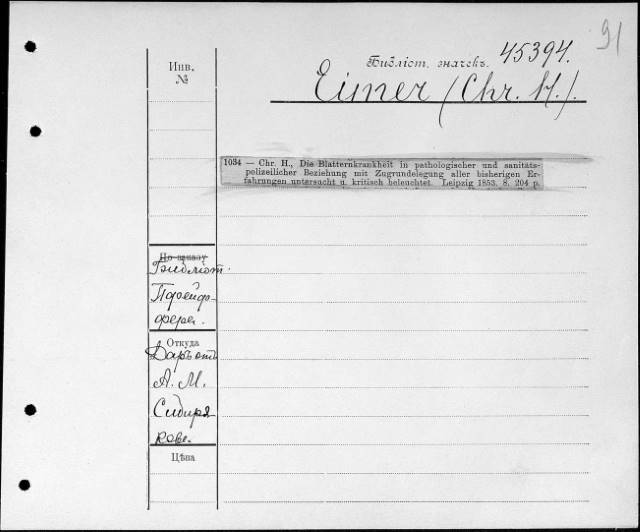 91
Инв.
№
Библіот. значекъ.
45394.
Eimer (Chr. H.).
1034 — Chr. H., Die Blatternkrankheit in pathologischer und sanitäts-
polizeilicher Beziehung mit Zugrundelegung aller bisherigen Er-
fahrungen untersucht u. kritisch beleuchtet. Leipzig 1853. 8. 204 p.
По заказу
Библіот.
Пфейф-
фера.
Откуда
Даръ отъ
А. М.
Сибиря
кова.
Цѣна